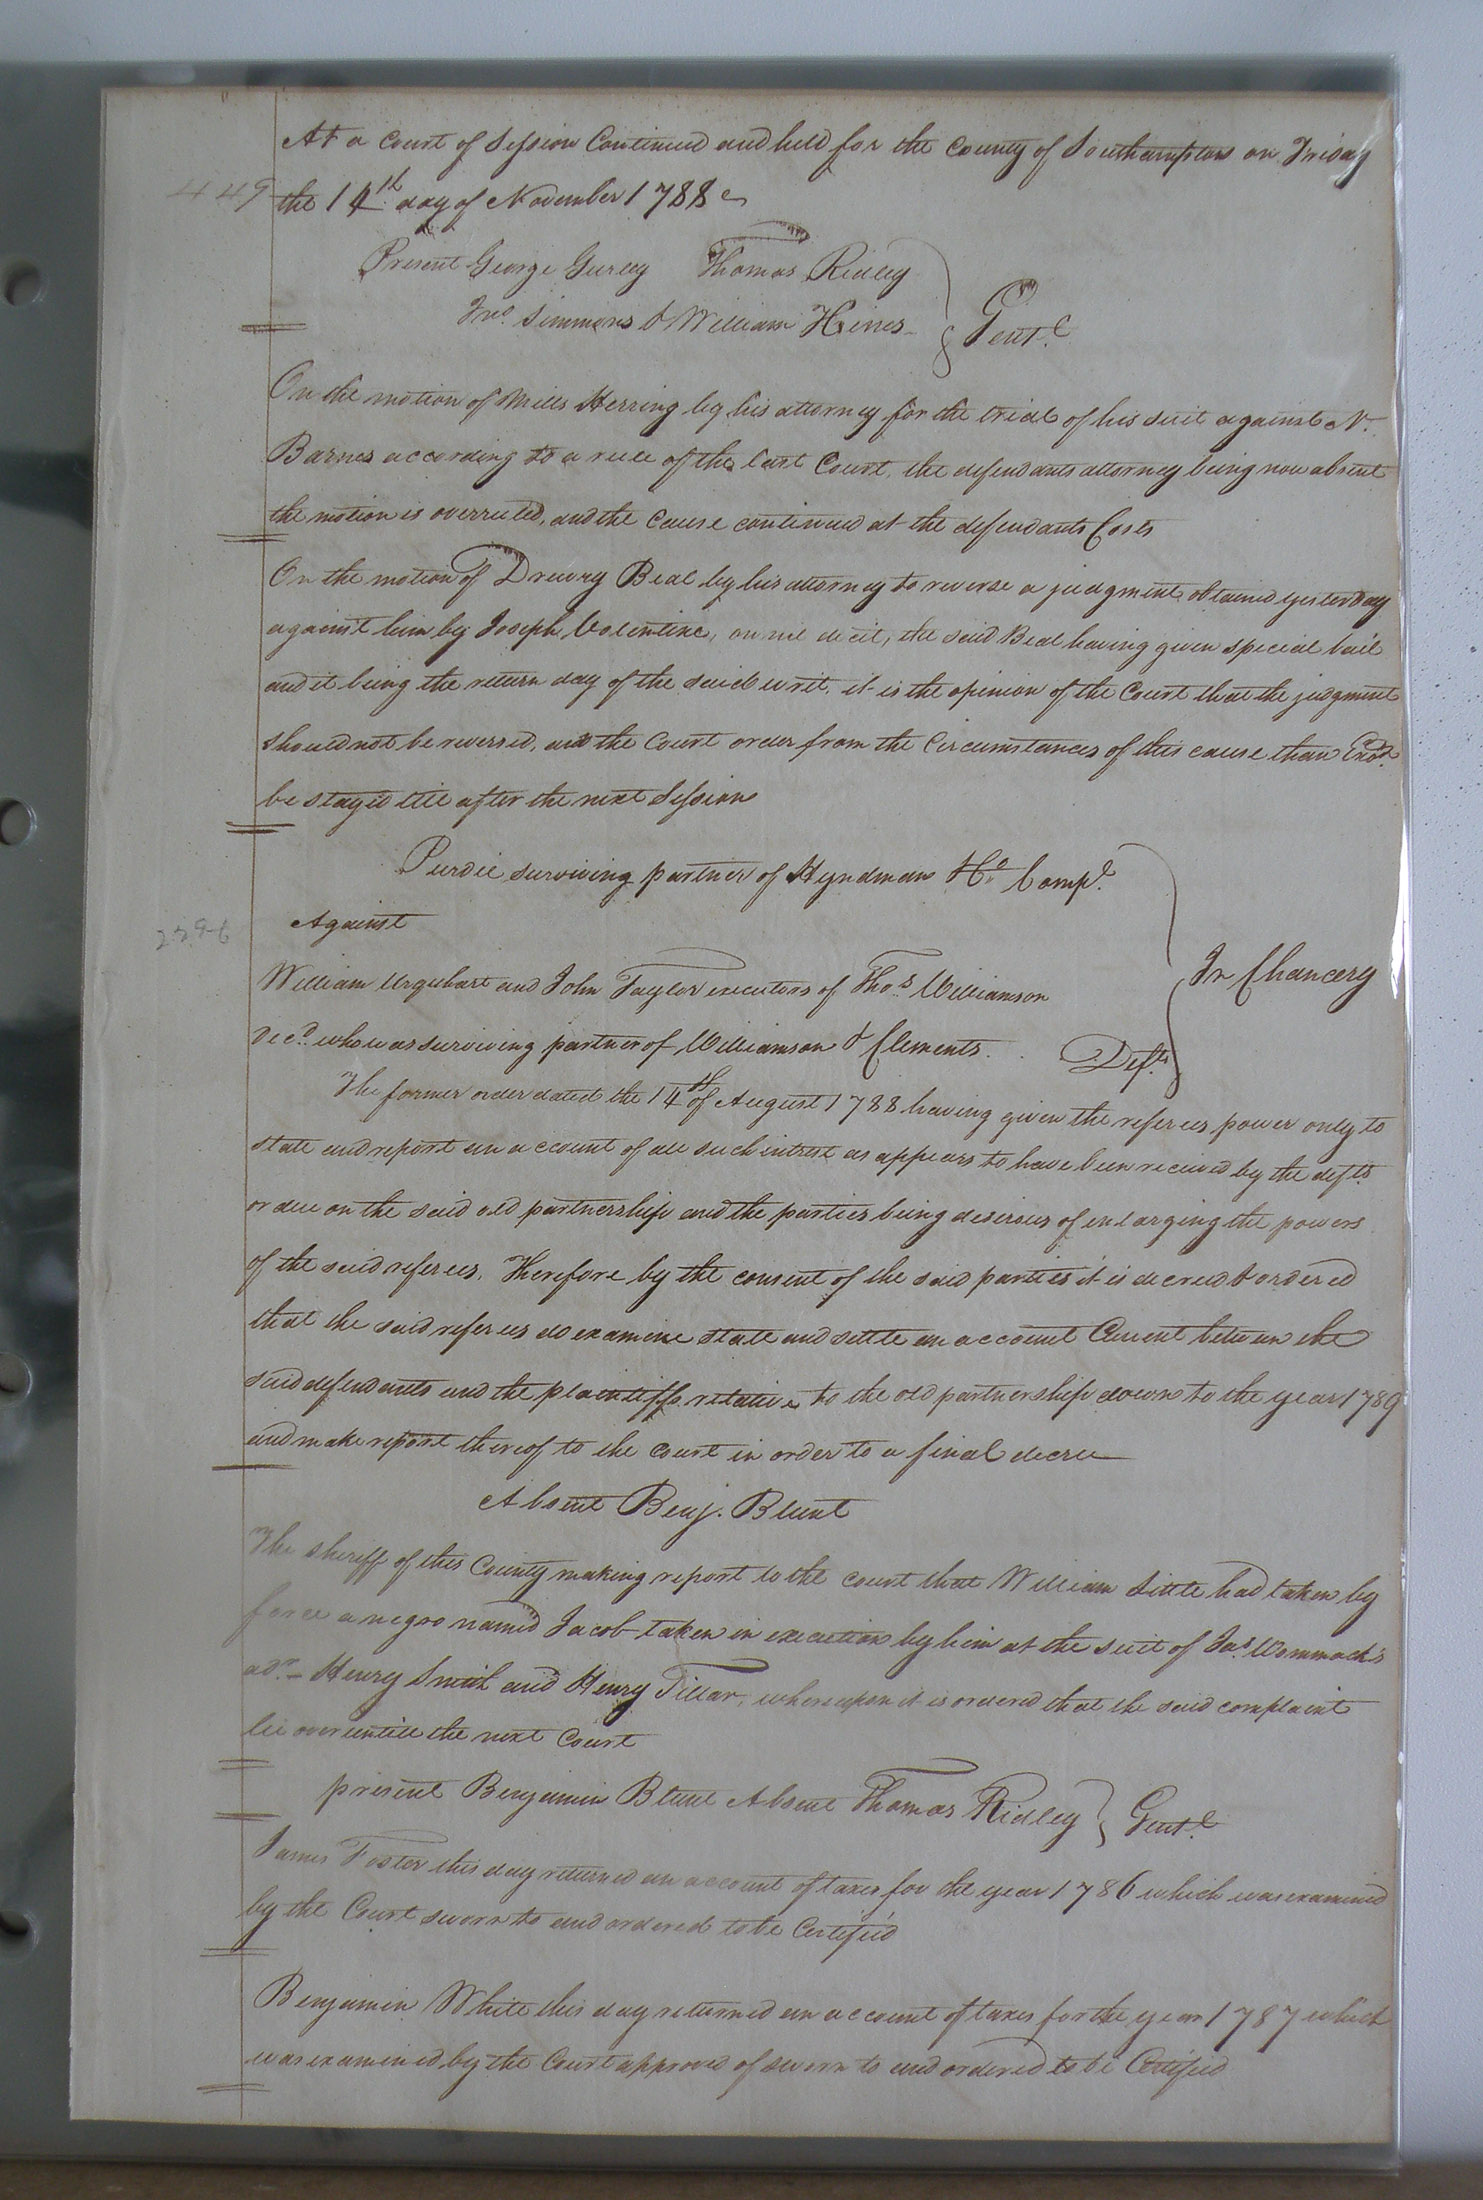 At a Court of Session Continued and held for the County of Southampton on Friday
449 the 14th day of November 1788
Present George Gurley Thomas Ridley
Jno. Simmons & William Hines Gent.
On the motion of Mills Herring by his attorney for the trial of his suit against N.
Barnes according to a rule of the last Court, the defendants attorney being now absent
the motion is overruled, and the cause continued at the defendants Costs
On the motion of Drewry Beal by his attorney to reverse a judgment obtained yesterday
against him by Joseph Valentine, on nil dicit, the said Beal having given special bail
and it being the return day of the said writ, it is the opinion of the Court that the judgment
should not be reversed, and the Court order from the Circumstances of this cause than Exon.
be stayed till after the next Session
Purdie surviving partner of Hyndman & Co. Compt.
2396
Against
In Chancery
William Urquhart and John Taylor executors of Thos. Williamson
decd. who was surviving partner of Williamson & Clements. Defts.
The former order dated the 14th of August 1788 having given the referees power only to
state and report an account of all such intrest as appears to have been received by the defts
or due on the said old partnership and the parties being desirous of enlarging the powers
of the said referees, Therefore by the consent of the said parties it is decreed & ordered
that the said referees do examine state and settle an account Current between the
said defendants and the plaintiffs relative to the old partnership down to the year 1789
and make report thereof to the court in order to a final decree
Absent Benj. Blunt
The sheriff of this County making report to the court that William Little had taken by
force a negro named Jacob taken in execution by him at the suit of Jas. Wommack's
adr. Henry Smith and Henry Tillar, whereupon it is ordered that the said complaint
lie over untill the next Court
present Benjamin Blunt Absent Thomas Ridley Gent.
James Foster this day returned an account of taxes for the year 1786 which was examined
by the Court sworn to and ordered to be Certified
Benjamin White this day returned an account of taxes for the year 1787 which
was examined by the Court approved of sworn to and ordered to be Certified